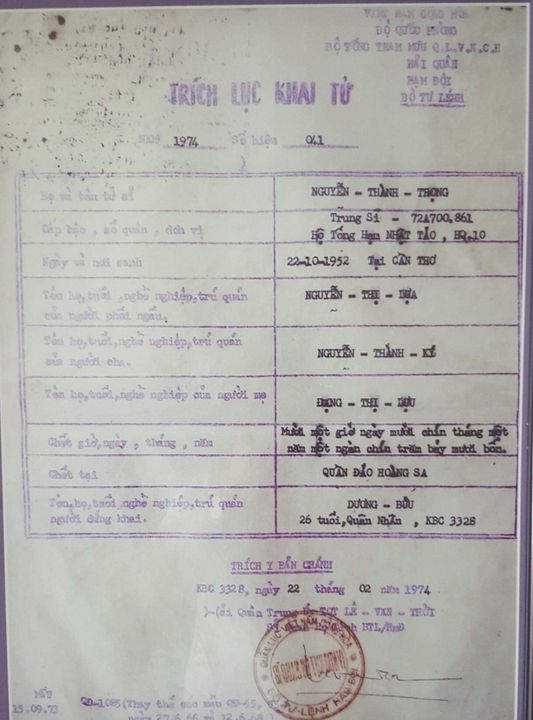 BỘ QUỐC PHÒNG
BỘ TỔNG THAM MƯU Q.L.V.N.C.H
HẢI QUÂN
HẠM ĐỘI
BỘ TƯ LỆNH
TRÍCH LỤC KHAI TỬ
1974 Số hiệu 041
Họ và tên tử sĩ
NGUYỄN - THÀNH - TRỌNG
Cấp bậc, số quân, đơn vị
Trung Sĩ - 72A700.861
Hộ Tống Hạm NHẬT TẢO, HQ.10
Ngày và nơi sanh
22-10-1952 Tại CẦN THƠ
Tên họ,tuổi,nghề nghiệp,trú quán
của người phối ngẫu.
NGUYỄN - THỊ - LỰA
Tên họ,tuổi,nghề nghiệp,trú quán
của người cha.
NGUYỄN - THÀNH - KÝ
Tên họ,tuổi,nghề nghiệp của người mẹ
ĐẶNG - THỊ - LỰU
Chết giờ,ngày, tháng, năm
Mười một giờ ngày mười chín tháng một
năm một ngàn chín trăm bảy mươi bốn.
Chết tại
QUẦN ĐẢO HOÀNG SA
Tên,họ,tuổi,nghề nghiệp,trú quán
người đứng khai.
DƯƠNG - BỬU
26 tuổi,Quân Nhân, KBC 3328
TRÍCH Y BẢN CHÁNH
KBC 3328, ngày 22 tháng 02 năm 1974
Quân Trung Úy LÊ - VAN - THỜI
BTL/HmĐ
MẪU
15.09.73
QĐ-1085(Thay thế các mẫu QĐ-65,
ngày 27.6.66 và 12.6.68)